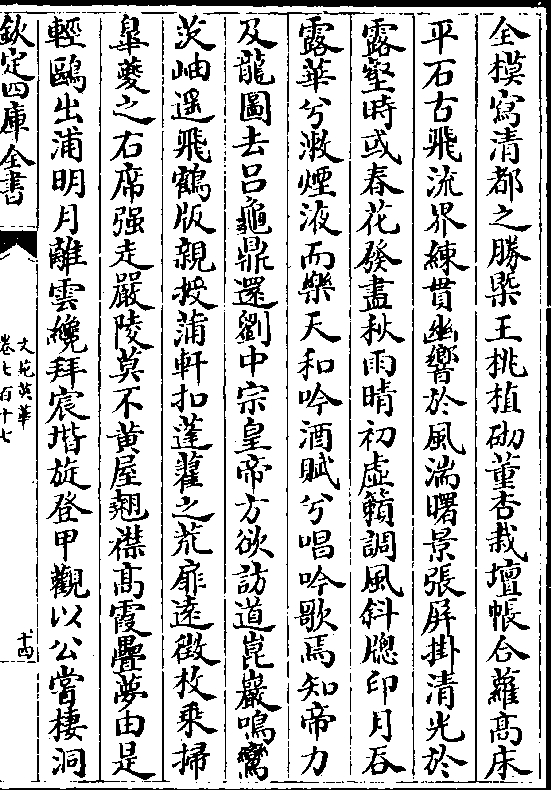 全模寫清都之勝槩王桃植砌董杏栽壇帳合蘿高床
平石古飛流界練貫幽響於風湍曙景張屏掛清光於
露壑時或春花發盡秋雨晴初虛籟調風斜牎印月吞
露華兮漱煙液而樂天和吟酒賦兮唱吟歌焉知帝力
及龍圖去吕龜鼎還劉中宗皇帝方欲訪道崑巖鳴鸞
茨岫遥飛鶴版親授蒲軒扣蓬藋之荒扉遠徴枚乘掃
臯夔之右席强走嚴陵莫不黄屋翹襟髙霞疊夢由是
輕鷗出浦明月離雲纔拜宸堦旋登甲觀以公嘗棲洞
欽定四庫全書
文苑英華
卷七百十七
十四